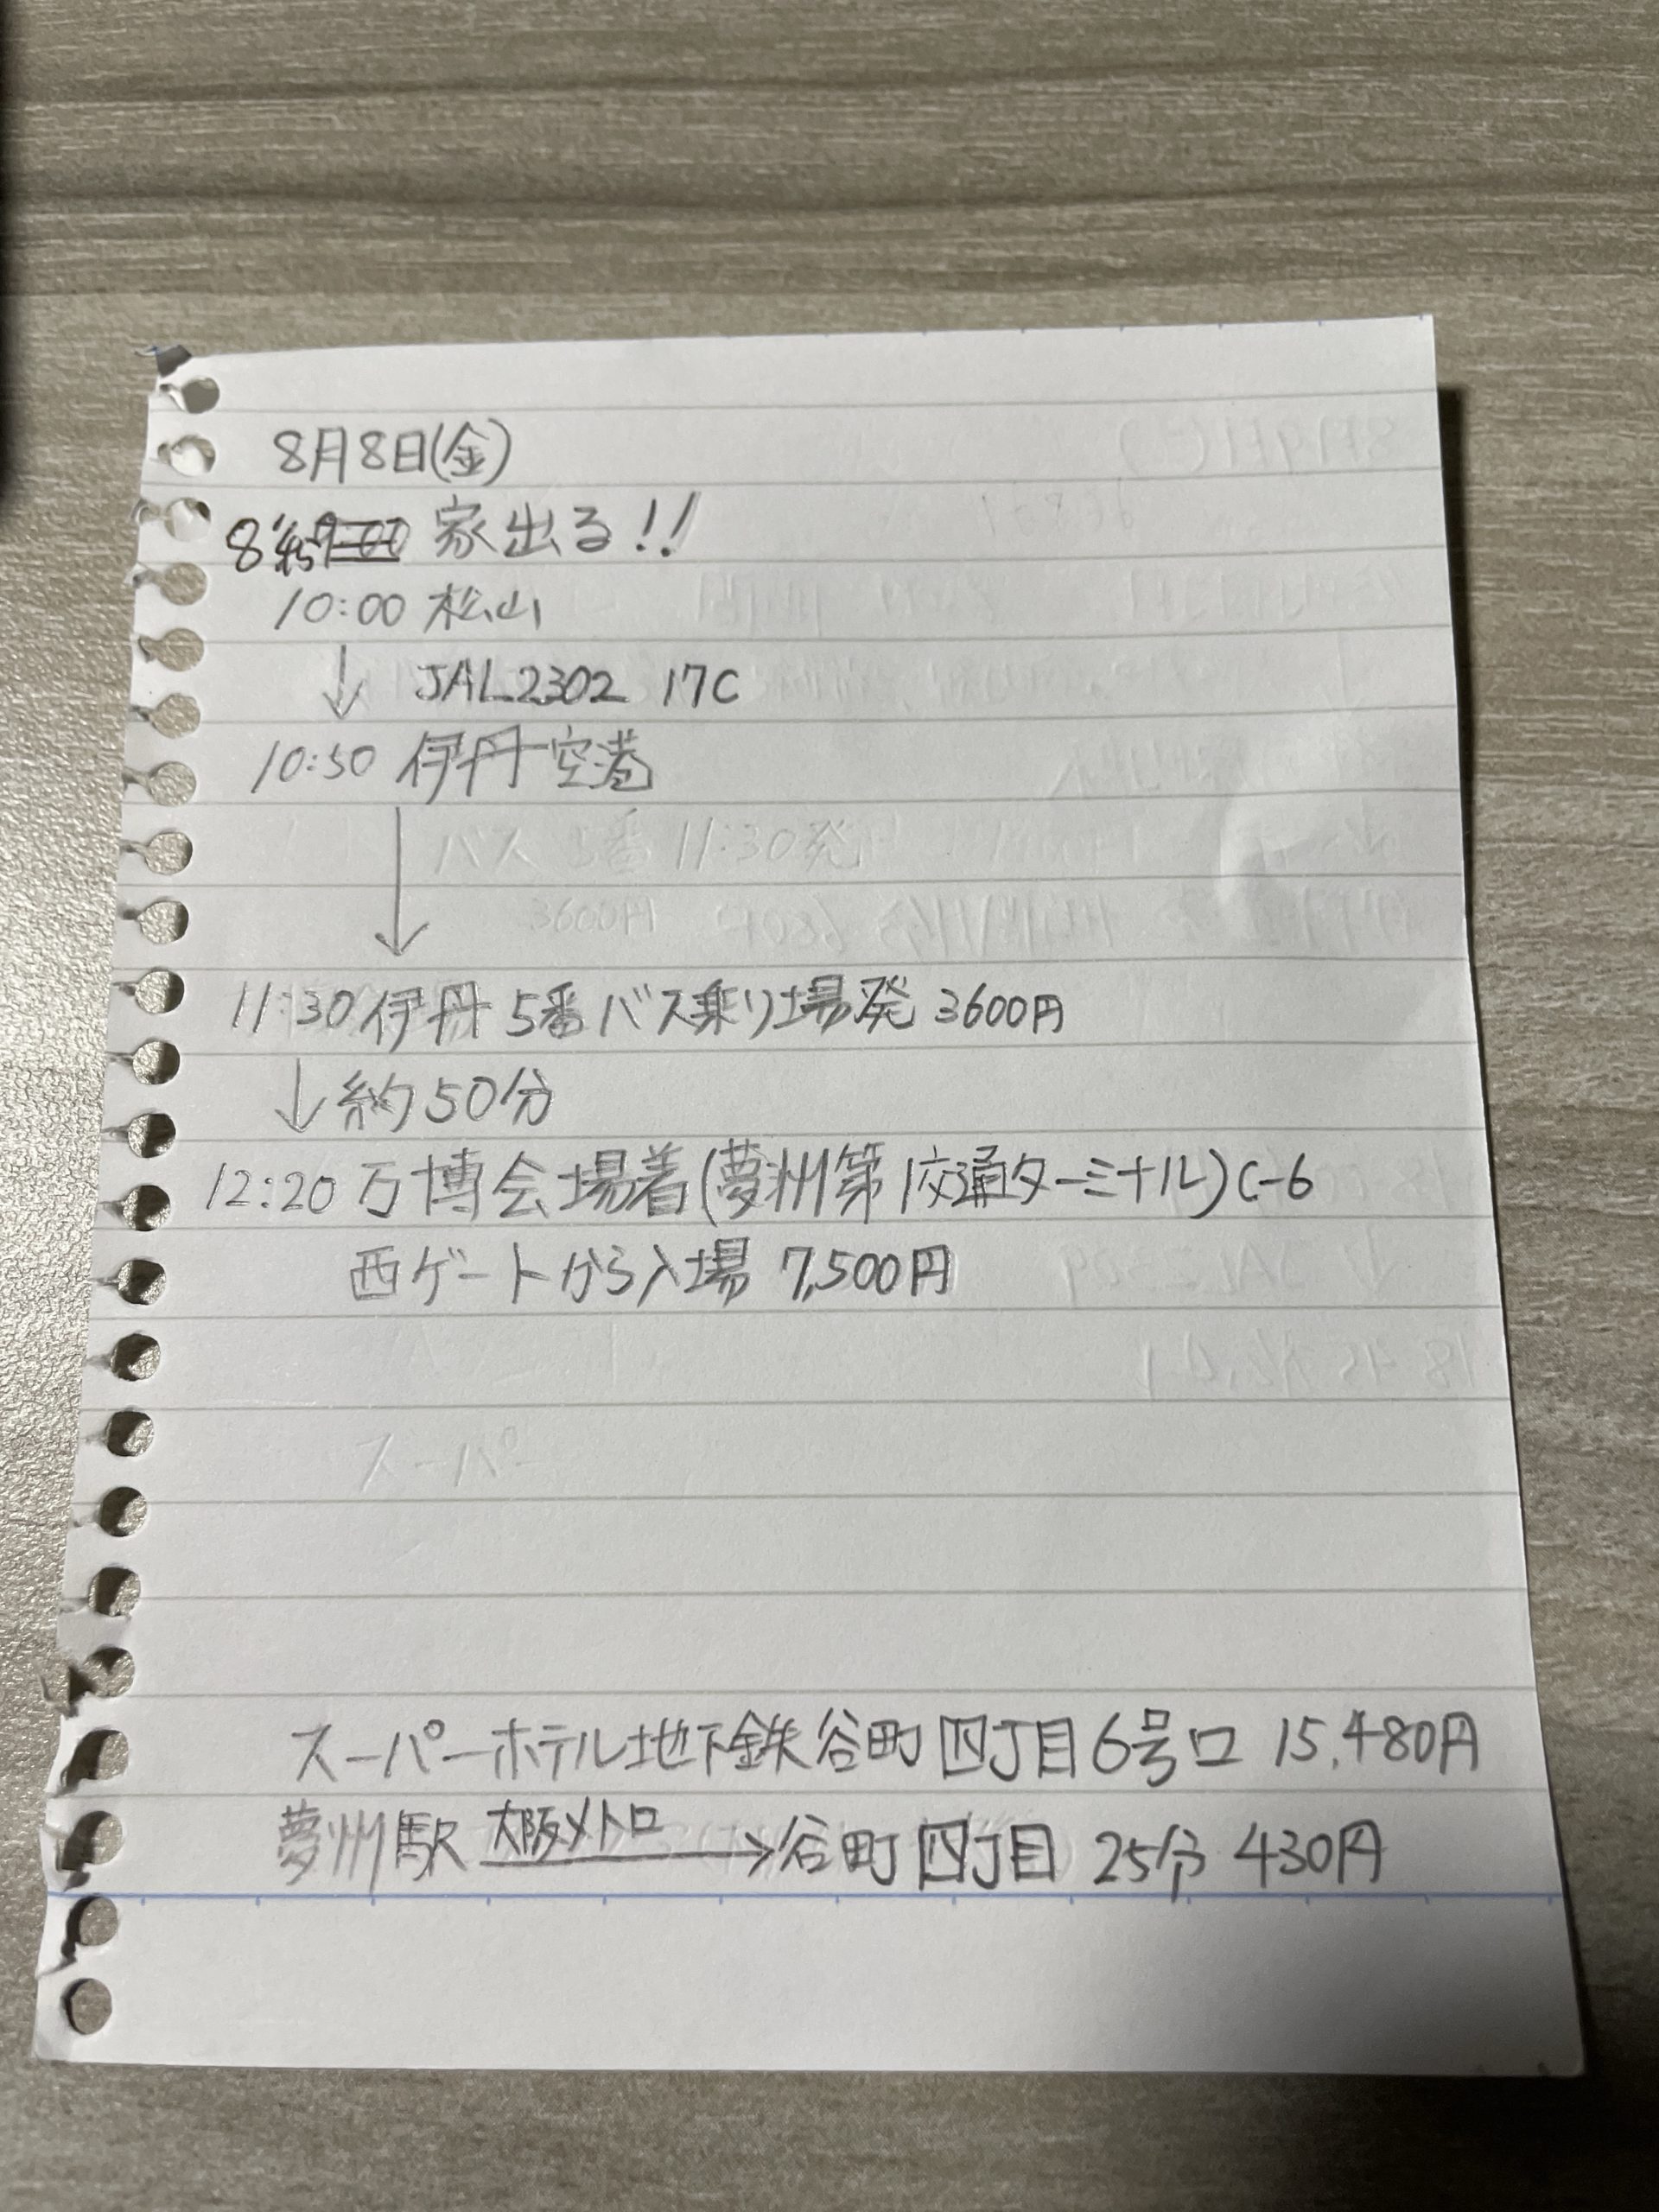 8月8日(金)
8:45 9:00 家出る!!
10:00 松山
↓ JAL2302 17C
10:50 伊丹空港
↓
バス 5番 11:30発
3600円
11:30 伊丹 5番バス乗り場発 3600円
↓約50分
12:20 万博会場着(夢洲第1交通ターミナル)C-6
西ゲートから入場 7,500円
スーパー
スーパーホテル地下鉄谷町四丁目6号口 15,480円
夢州駅 大阪メトロ → 谷町四丁目 25分 430円